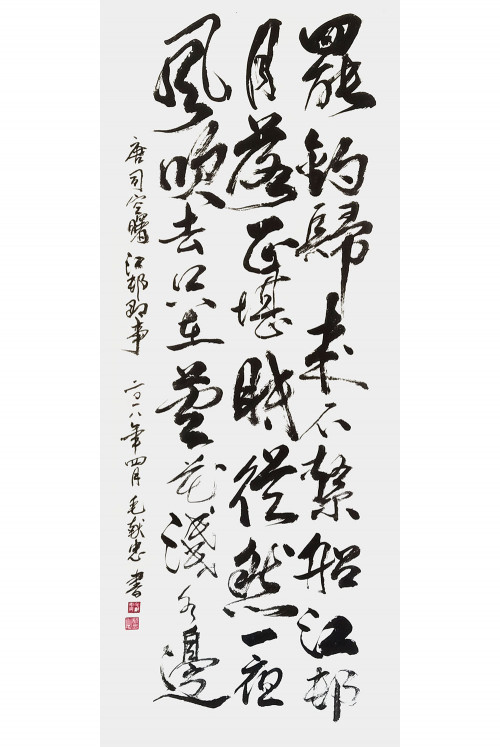 罷釣歸來不繫船江邨
月落正堪眠從然一夜
風吹去只在蘆花淺水邊
唐司空曙江邨即事 二〇一八年四月毛献忠書